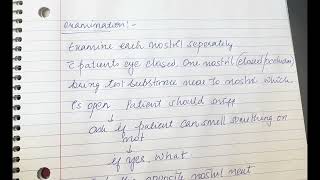 examination:-
Examine each nostril seperately
c̄ patients eye closed. One nostril (closed/
bring test substance near to nostril which
is open patient should sniff
ask if patient can smell something or
not
if yes. what
the opposite nostril next